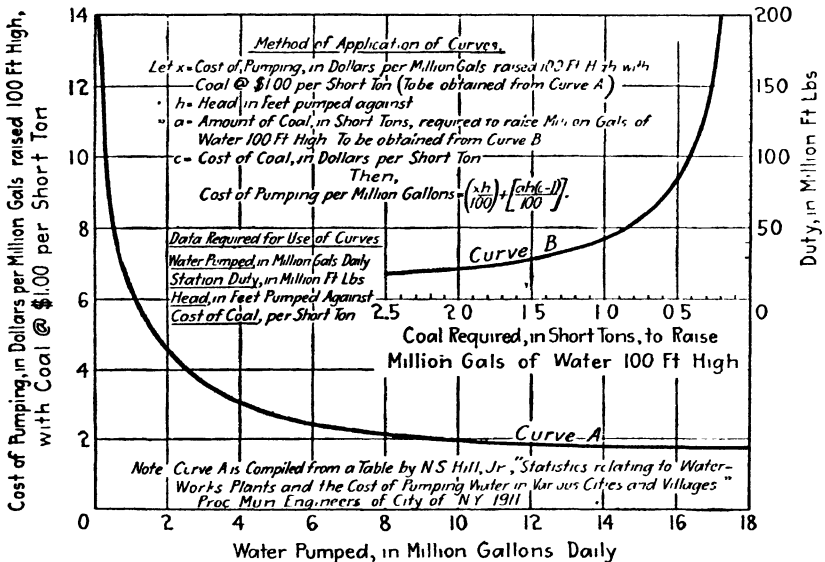 Cost of Pumping, in Dollars per Million Gals raised 100 Ft High,
with Coal @ $1.00 per Short Ton
14
12
10
8
6
4
2
0
Method of Application of Curves.
Let x = Cost of Pumping, in Dollars per Million Gals raised 100 Ft High with
Coal @ $1.00 per Short Ton (To be obtained from Curve A)
" h = Head, in Feet pumped against
" a = Amount of Coal, in Short Tons, required to raise Million Gals of
Water 100 Ft High To be obtained from Curve B
c = Cost of Coal, in Dollars per Short Ton
Then,
Cost of Pumping per Million Gallons = (xh/100) + [ah(c-1)/100].
Data Required for Use of Curves
Water Pumped, in Million Gals Daily
Station Duty, in Million Ft Lbs
Head, in Feet Pumped Against
Cost of Coal, per Short Ton
Curve B
200
150
100
50
0
Duty, in Million Ft Lbs
2.5 2.0 1.5 1.0 0.5
Coal Required, in Short Tons, to Raise
Million Gals of Water 100 Ft High
Curve A
Note Curve A is Compiled from a Table by N S Hill, Jr, "Statistics relating to Water-
Works Plants and the Cost of Pumping Water in Various Cities and Villages"
Proc Mun Engineers of City of NY 1911
0 2 4 6 8 10 12 14 16 18
Water Pumped, in Million Gallons Daily